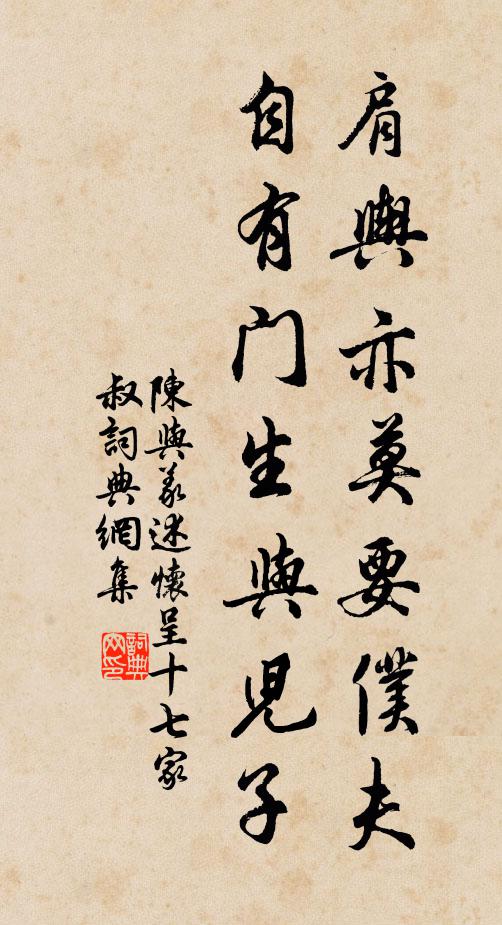 肩輿亦莫要僕夫
自有門生與兒子
陳與義述懷呈十七家
叔詞典網集
詞典網印